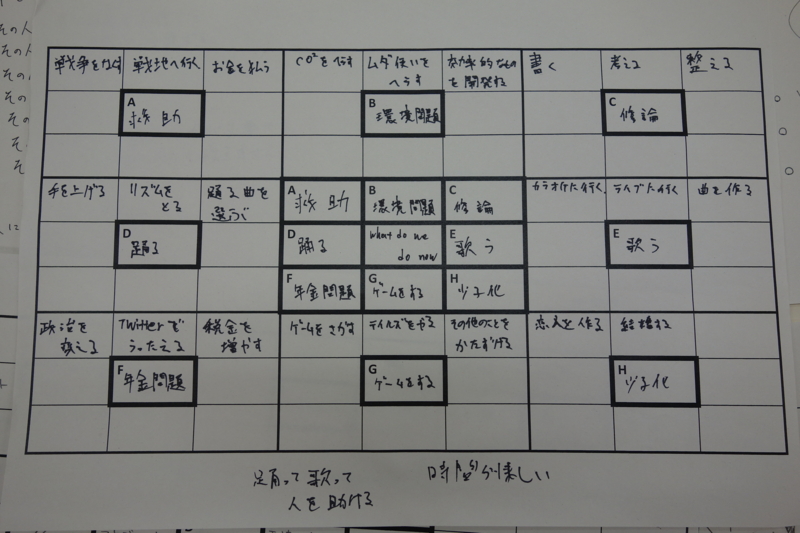 その人
その人
その
その
その
そ
戦争をなくす
戦地へ行く
お金を払う
CO²をへらす
ムダ使いを
へらす
効率的なもの
を開発する
書く
考える
整える
A
救助
B
環境問題
C
修論
手を上げる
リズムを
とる
踊る曲を
選ぶ
A
救助
B
環境問題
C
修論
カラオケに行く
ライブに行く
曲を作る
D
踊る
D
踊る
what do we
do now
E
歌う
E
歌う
F
年金問題
G
ゲームをする
H
少子化
政治を
変える
Twitterで
うったえる
税金を
増やす
ゲームをさがす
テイルズをやる
その他のことを
かたずける
恋人を作る
結婚する
F
年金問題
G
ゲームをする
H
少子化
踊って歌って
人を助ける
時間が惜しい